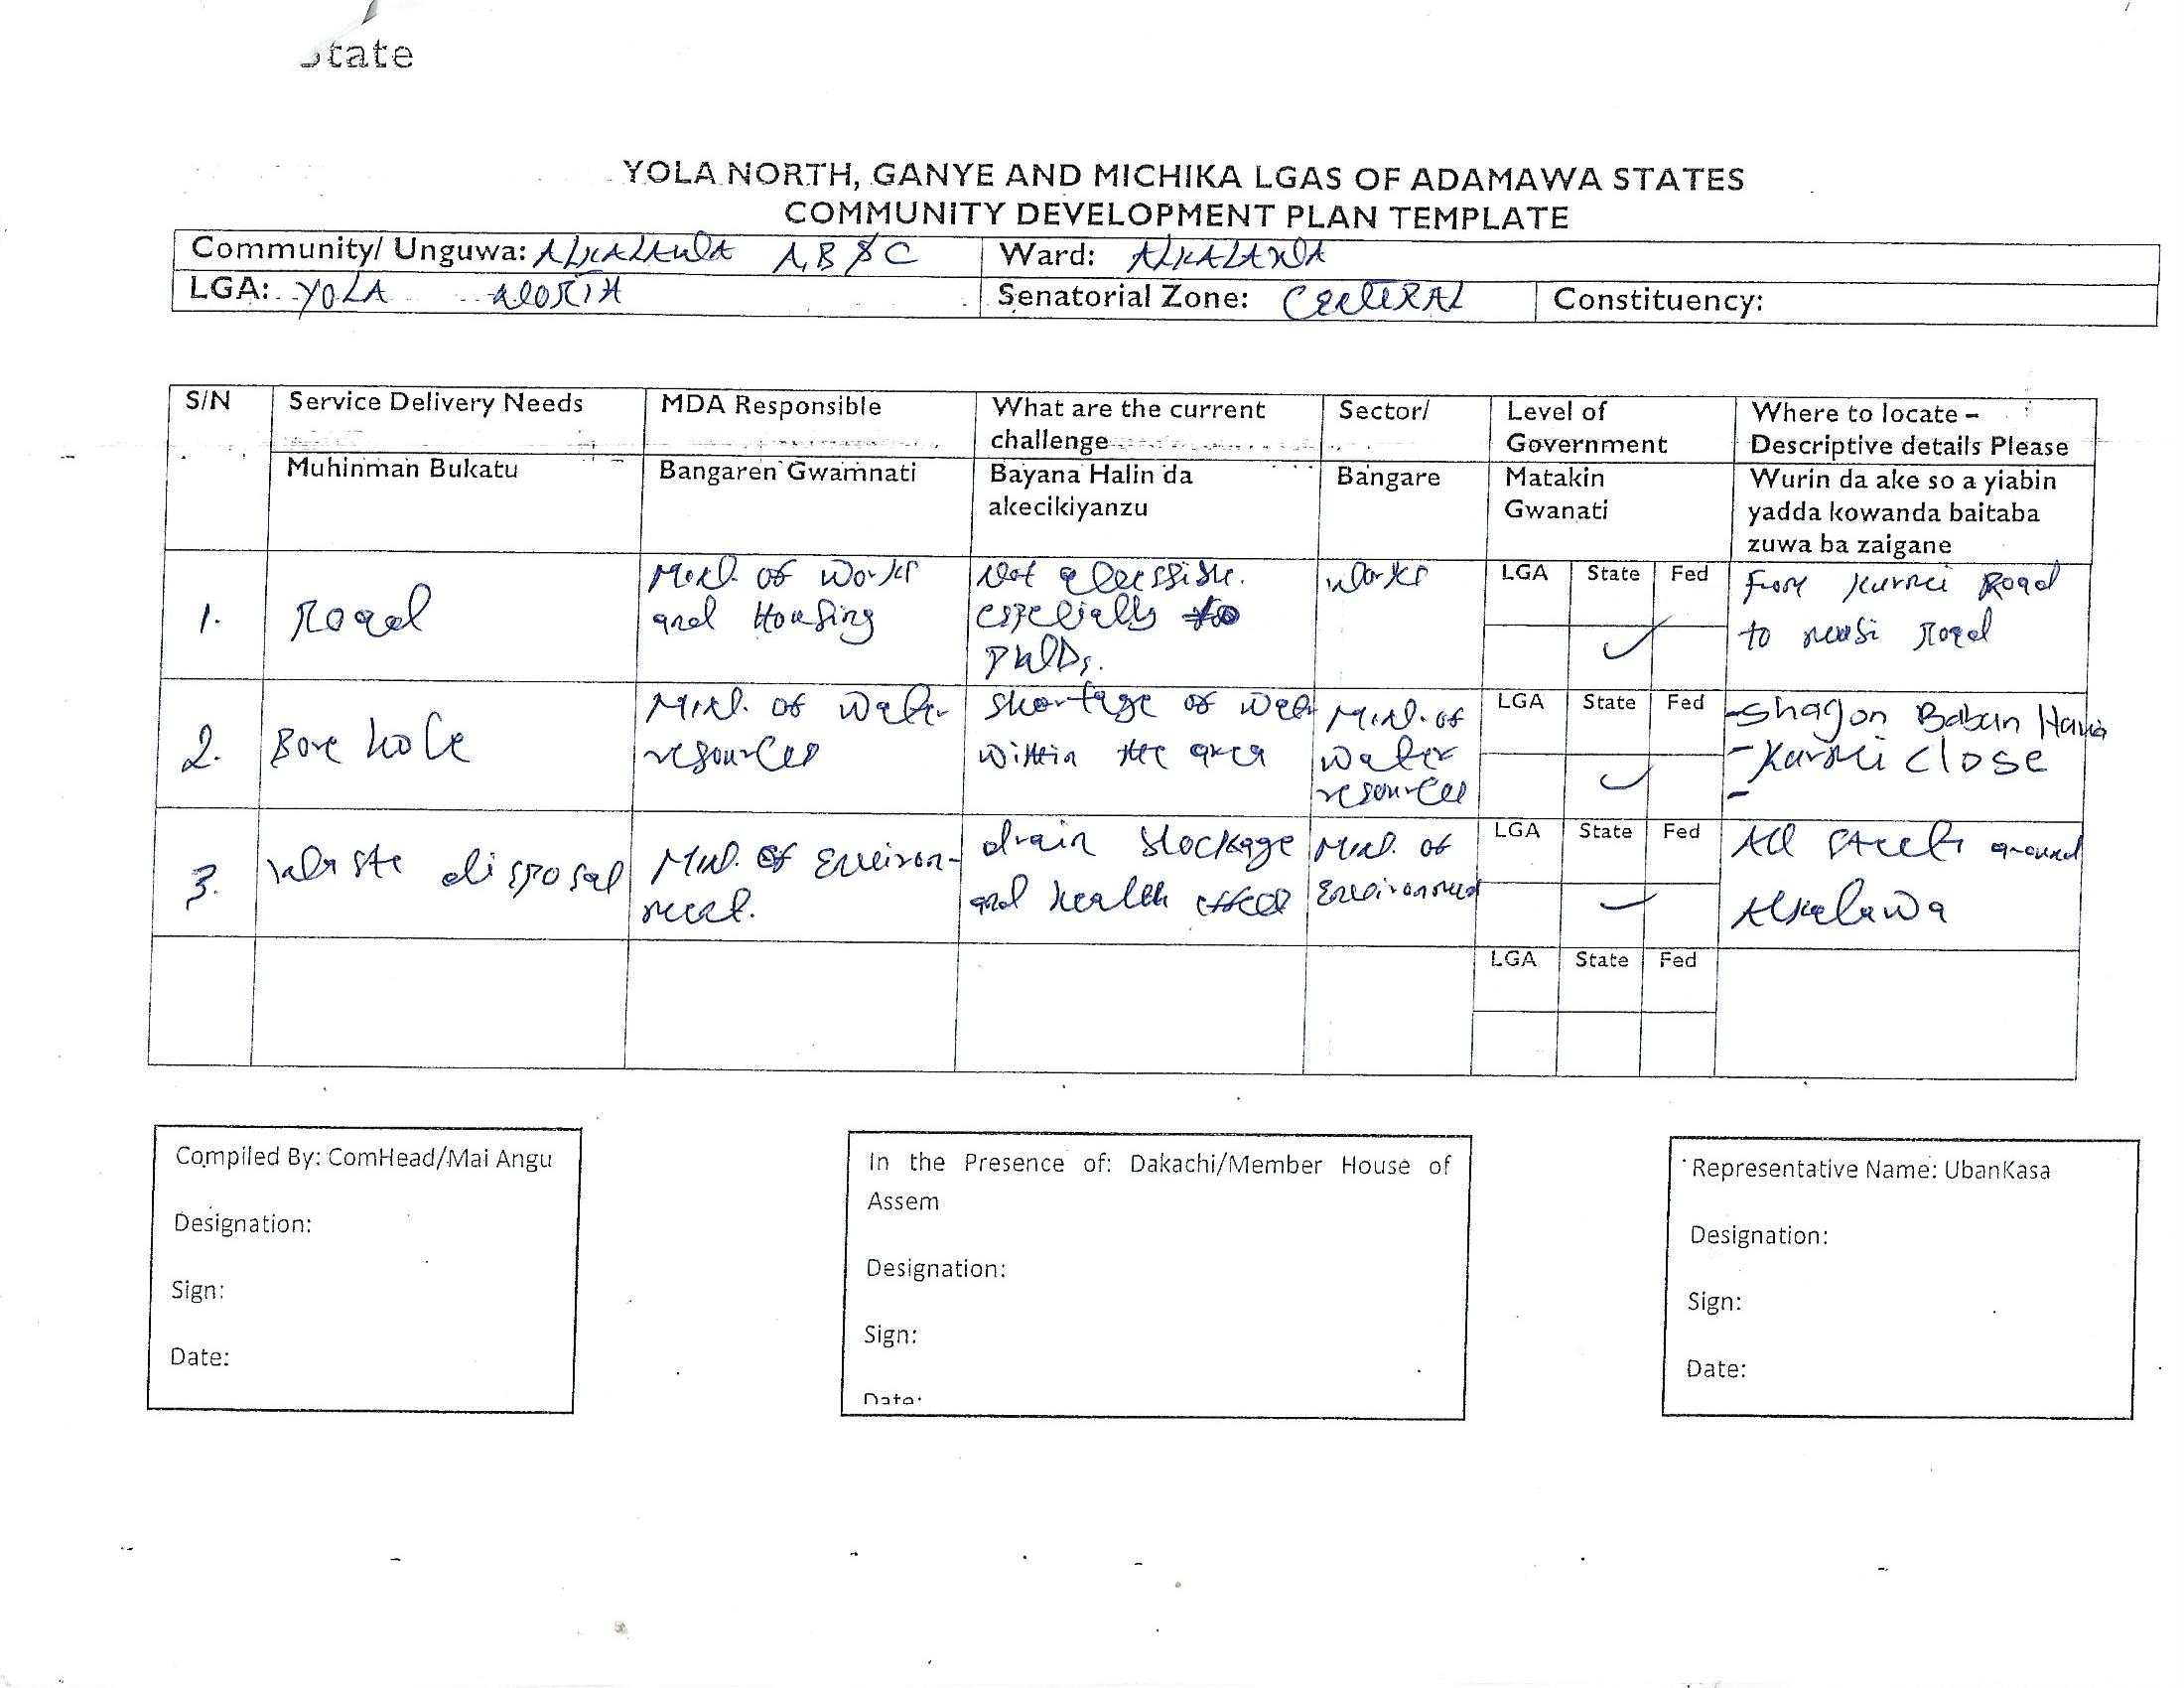 State
YOLA NORTH, GANYE AND MICHIKA LGAS OF ADAMAWA STATES
COMMUNITY DEVELOPMENT PLAN TEMPLATE
Community/ Unguwa: ALKALAWA A, B & C Ward: ALKALAWA
LGA: YOLA NORTH Senatorial Zone: CENTRAL Constituency:
S/N Service Delivery Needs MDA Responsible What are the current challenge Sector/ Level of Government Where to locate – Descriptive details Please
Muhinman Bukatu Bangaren Gwamnati Bayana Halin da akecikiyanzu Bangare Matakin Gwanati Wurin da ake so a yiabin yadda kowanda baitaba zuwa ba zaigane
1. Road Min. of Works and Housing Not accessible. especially to PWDs. Works LGA State ✓ Fed From Kurmi Road to Road
2. Bore hole Min. of Water resources Shortage of water within the area Min. of Water resources LGA State ✓ Fed - Shagon Baban - Kurmi close -
3. Waste disposal Min. of Environment. drain blockage and health effect Min. of Environment LGA State ✓ Fed All streets around Alkalawa
LGA State Fed
Compiled By: ComHead/Mai Angu
Designation:
Sign:
Date:
In the Presence of: Dakachi/Member House of
Assem
Designation:
Sign:
Date:
Representative Name: UbanKasa
Designation:
Sign:
Date: